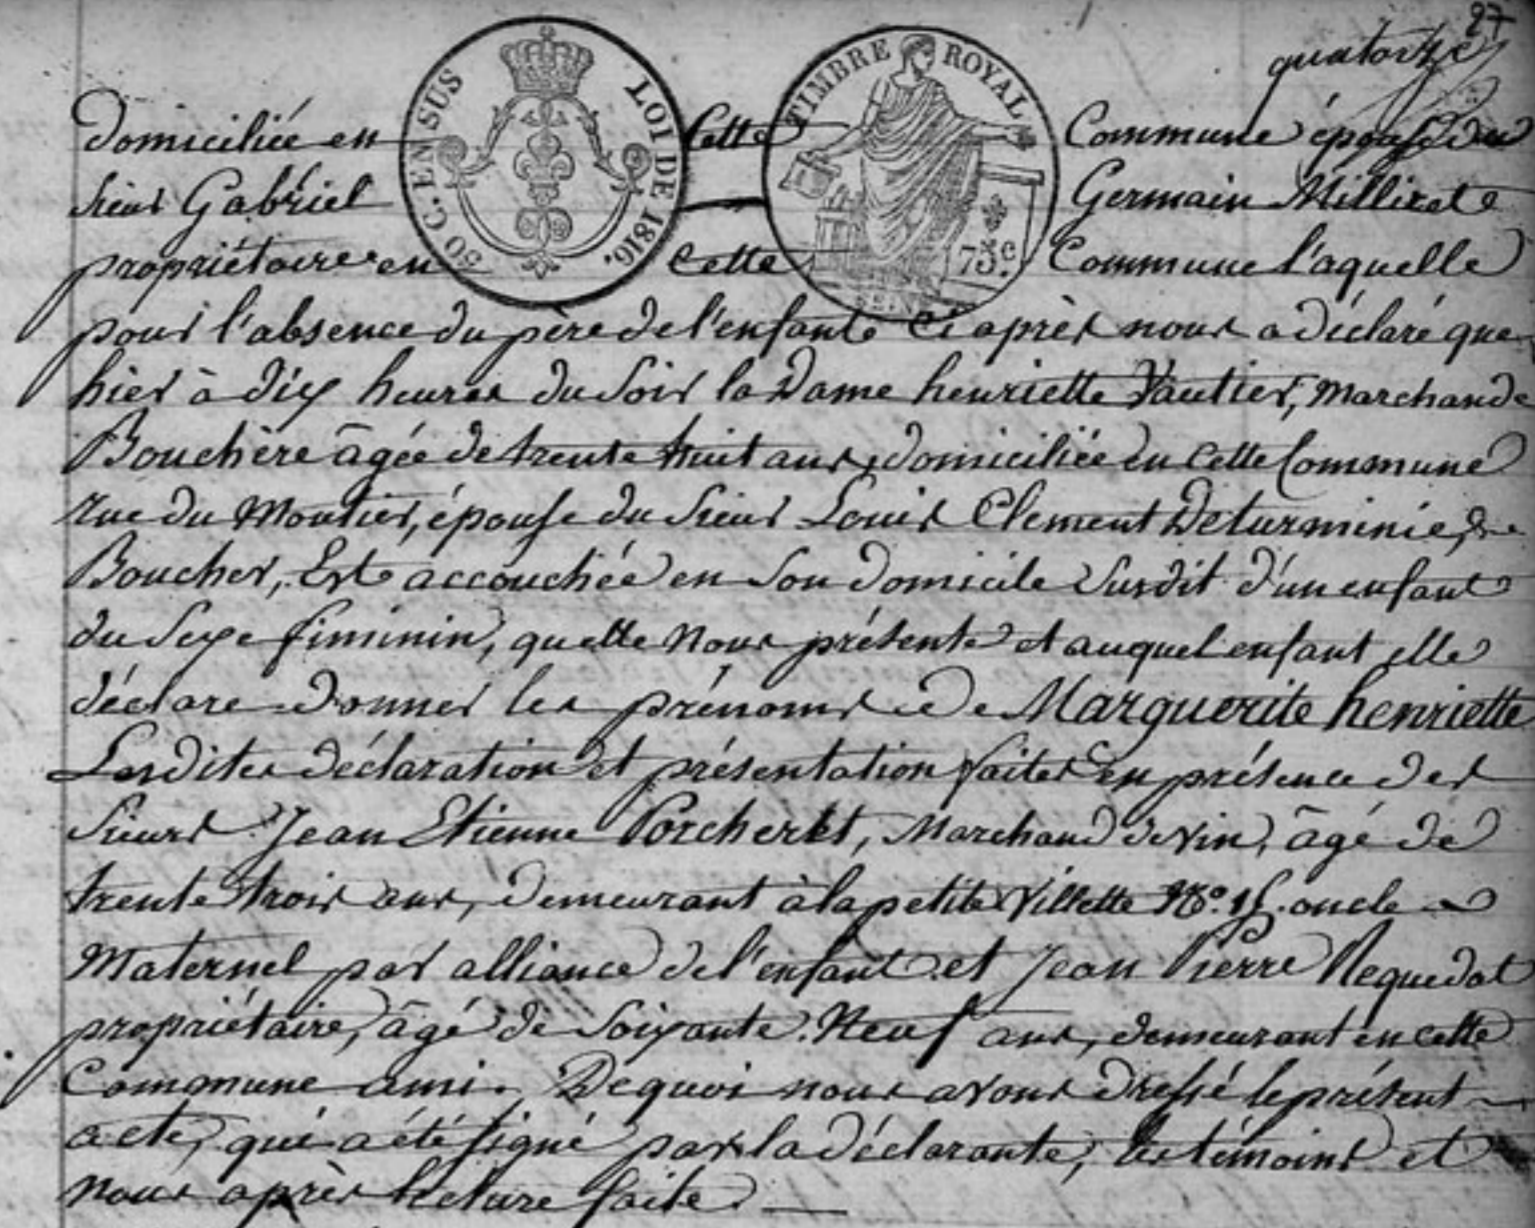 27
quatorze
50 C. EN SUS LOI DE 1816.
TIMBRE ROYAL
75c
SEINE
domiciliée en cette Commune épouse du
sieur Gabriel Germain Millizet
propriétaire en cette Commune l'aquelle
pour l'absence du père de l'enfant ci après nous a déclaré que
hier à dix heures du soir la Dame henriette Vautier, Marchande
Bouchère âgée de trente huit ans, domiciliée en cette Commune
rue du Moutier, épouse du sieur Louis Clement Deturminie,
Boucher, Est accouchée en son domicile susdit d'un enfant
du sexe féminin, quelle nous présente et auquel enfant elle
déclare donner les prénoms de Marguerite henriette
Lesdites déclaration et présentation faites en présence des
sieurs Jean Etienne Porcheret, Marchand de vin, âgé de
trente trois ans, demeurant à la petite Villette No. oncle
Maternel par alliance de l'enfant et Jean Pierre Nequedot
propriétaire, âgé de soixante Neuf ans, demeurant en cette
Commune ami. De quoi nous avons dressé le présent
acte, qui a été signé par la déclarante, les témoins et
nous après lecture faite.